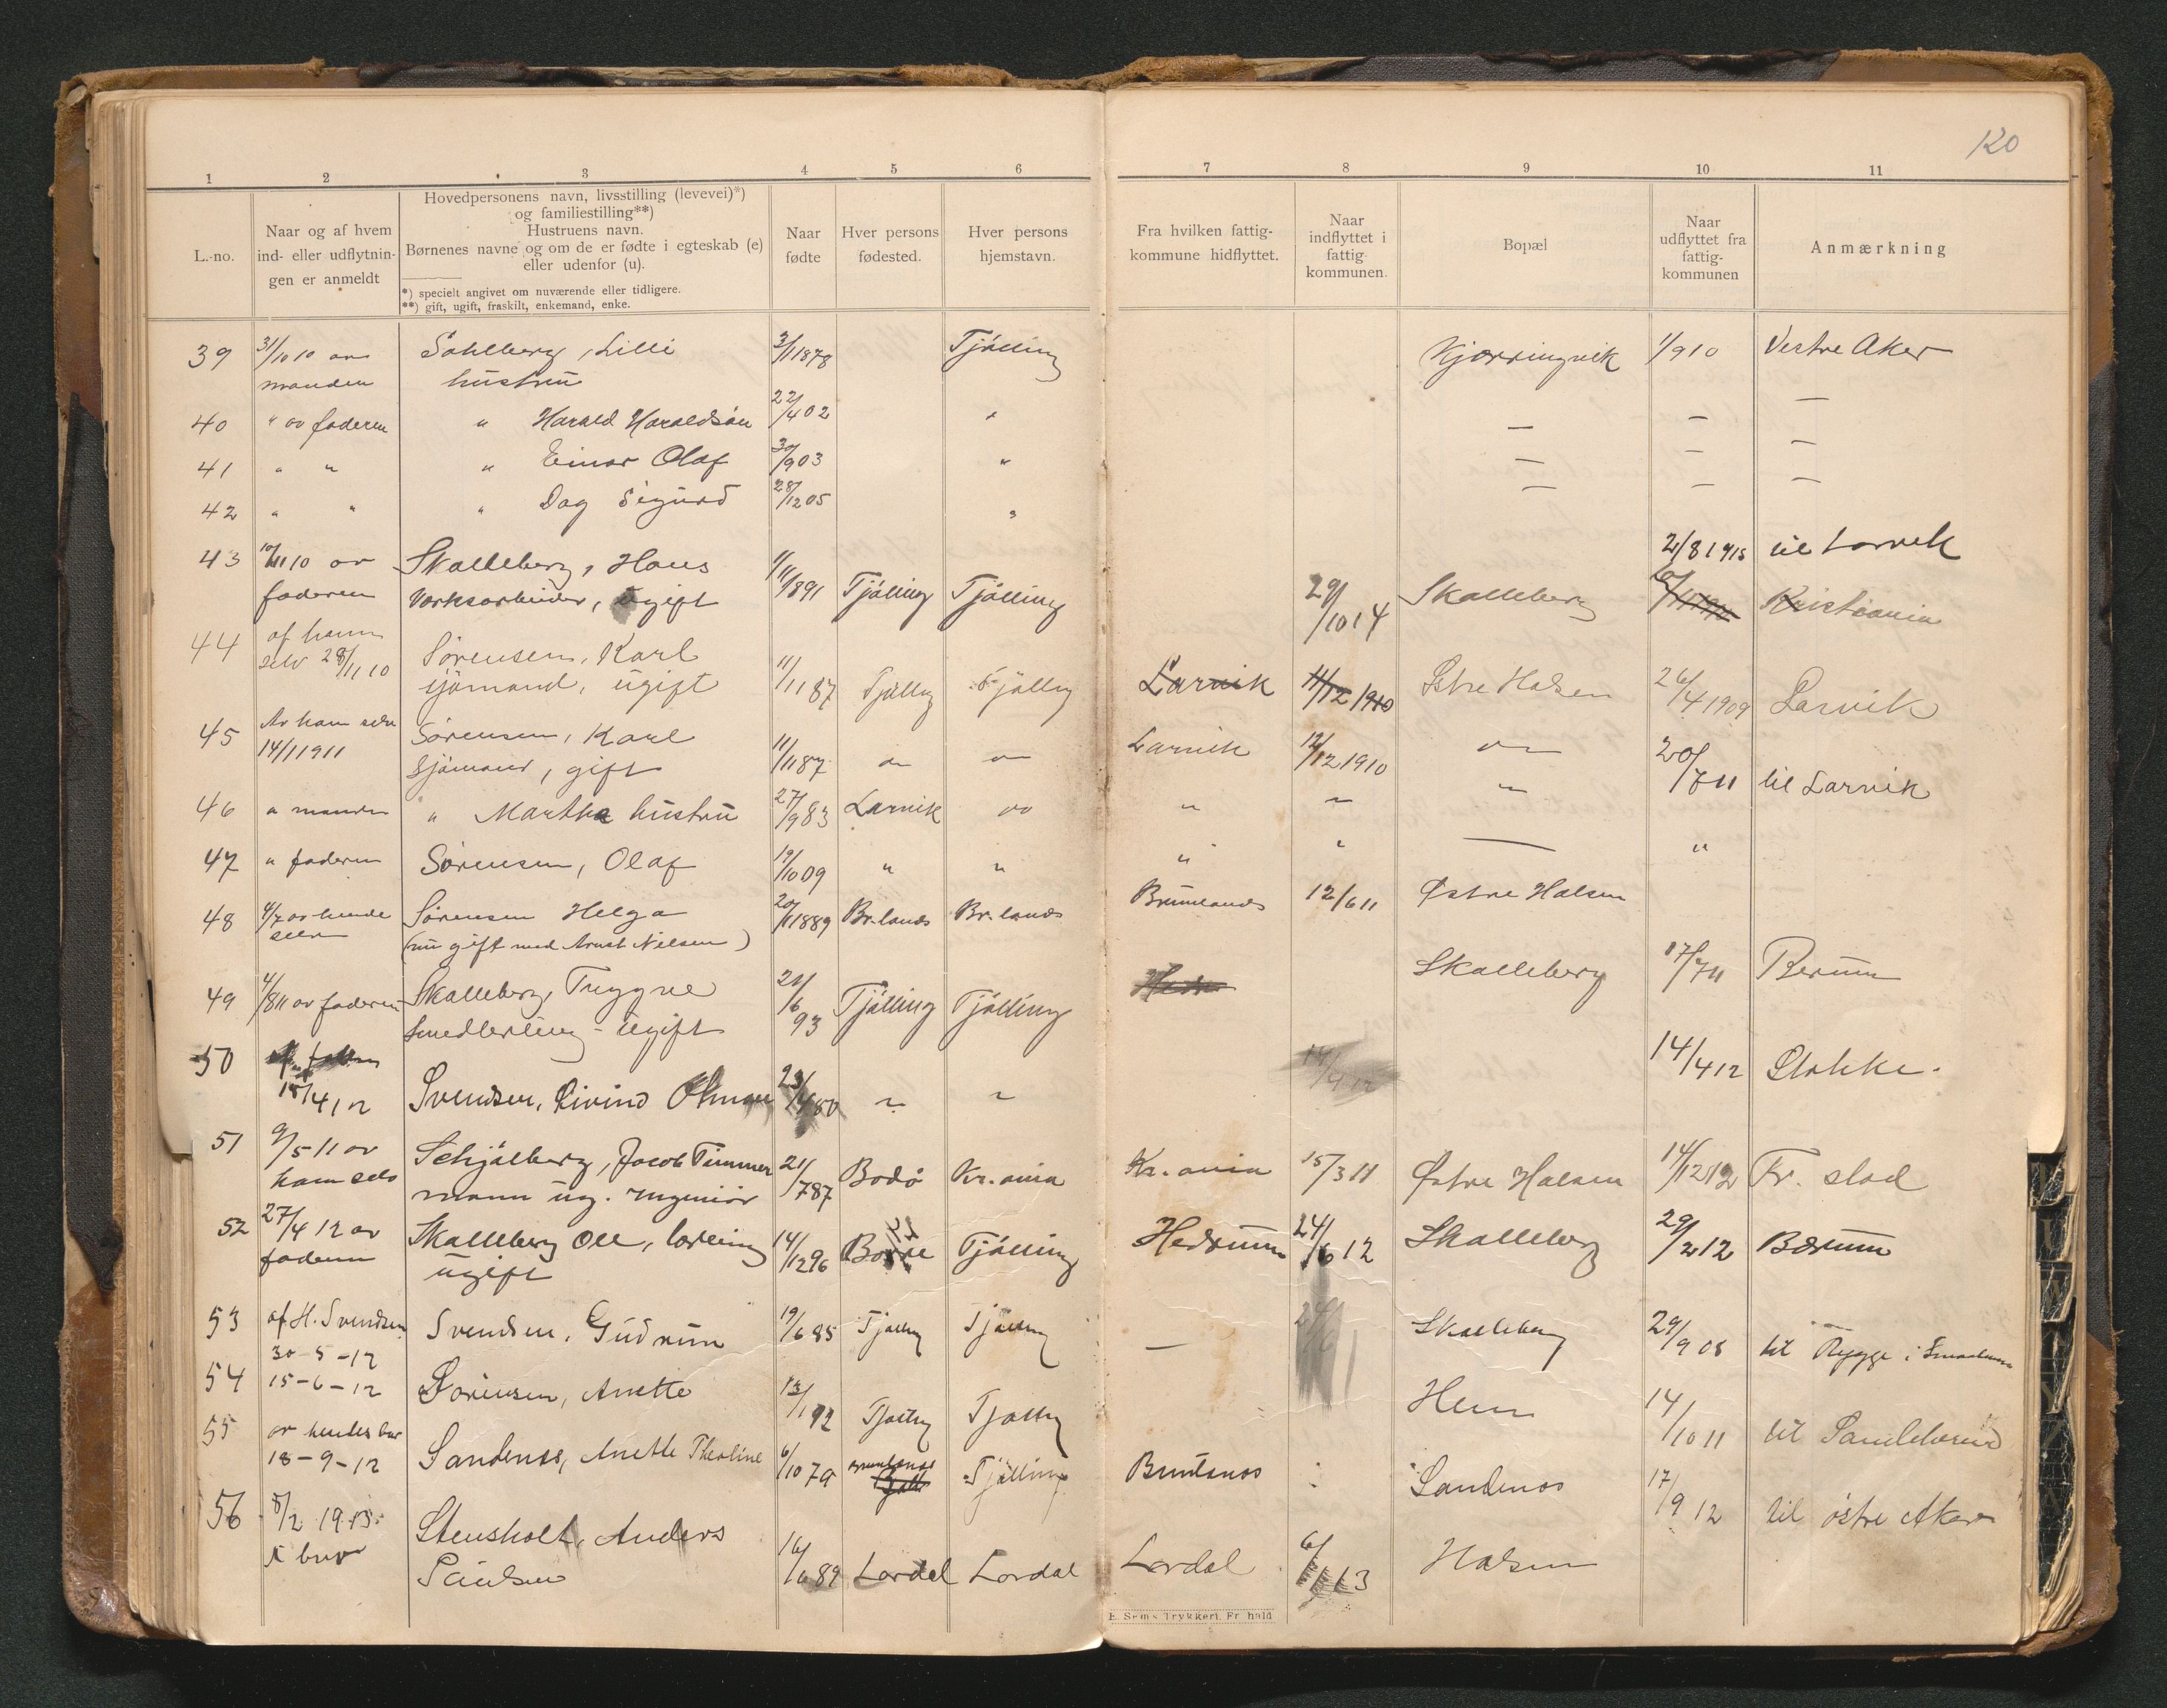 120
1 2 3 4 5 6 7 8 9 10 11
L.-no.
Naar og af hvem
ind- eller udflytnin-
gen er anmeldt
Hovedpersonens navn, livsstilling (levevei)*)
og familiestilling**)
Hustruens navn.
Børnenes navne og om de er fødte i egteskab (e)
eller udenfor (u).
*) specielt angivet om nuværende eller tidligere.
**) gift, ugift, fraskilt, enkemand, enke.
Naar
fødte
Hver persons
fødested.
Hver persons
hjemstavn.
Fra hvilken fattig-
kommune hidflyttet.
Naar
indflyttet i
fattig-
kommunen.
Bopæl
Naar
udflyttet fra
fattig-
kommunen
Anmærkning
39 31/10 10 av Sohlberg, Lilli 3/1 1878 Tjølling Kjærringvik 1/9 10 Vestre Aker
manden hustru
40 " av faderen " Harald Haraldsøn 22/4 02 " — — —
41 " " " Einar Olaf 30/9 03 " — — —
42 " " " Dag Sigurd 28/12 05 " — — —
43 10/11 10 av Skalleberg, Hans 1/11 1891 Tjølling Tjølling 29/10 14 Skalleberg 2/8 1915 til Larvik
faderen Verksarbeider, ugift Kristiania
44 af ham Sørensen, Karl 11/11 87 Tjølling Tjølling Larvik 11/12 1910 Østre Halsen 26/4 1909 Larvik
selv 28/11 10 sjømand, ugift
45 Av ham selv Sørensen, Karl 11/11 87 " " Larvik 12/12 1910 " 20/7 11 til Larvik
14/1 1911 Sjømand, gift
46 " manden " Martha hustru 27/9 83 Larvik " " " "
47 " faderen Sørensen, Olaf 19/10 09 " " " " — "
48 4/7 av hende Sørensen Helga 20/11 1889 Br.lanes Br.lanes Brunlanes 12/6 11 Østre Halsen
selv (nu gift med Arnst Nilsen)
49 4/8 11 av faderen Skalleberg, Trygve 21/6 93 Tjølling Tjølling Hedrum Skalleberg 17/7 11 Berum
Smedlerling - ugift
50 15/4 12 Svendsen, Eivind Otmar 23/4 80 " " 14/4 12 14/4 12 Stokke.
51 9/5 11 av Schjølberg, Jacob Timmer 21/7 87 Bodø Kr.ania Kr.ania 15/3 11 Østre Halsen 14/12 12 Fr. stad
ham selv mann ug. Ingeniør
52 27/4 12 av Skalleberg Ole, lærling 14/12 96 Borre Tjølling Hedrum 24/6 12 Skalleberg 29/2 12 Bærum
faderen ugift
53 af H. Svendsen Svendsen, Gudrun 19/6 85 Tjølling Tjølling — Skalleberg 29/9 08 til Rygge i Smaalenene
30-5-12
54 15-6-12 Sørensen, Anette 13/1 92 Tjølling Tjølling Hem 14/10 11 til Sandeherred
55 av hendes bror
18-9-12 Sandenes, Anette Theoline 6/10 79 Brunlanes Tjølling Brunlanes Sandenes 17/9 12 til østre Aker
56 8/2 1913 Stensholt, Anders 16/6 89 Lardal Lardal Lardal 6/1 13 Halsen
Paulsen
E. Sem's Trykkeri, Fr.hald